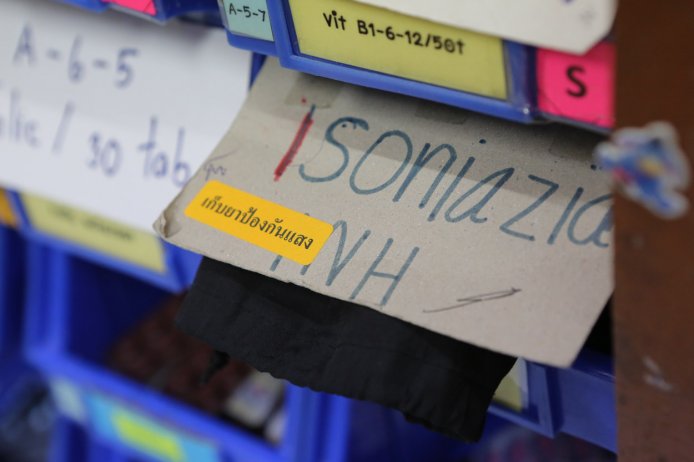 A-5-7
Vit B1-6-12/50t
S
A-6-5
lic / 30 tab
Isoniazid
เก็บยาป้องกันแสง
INH